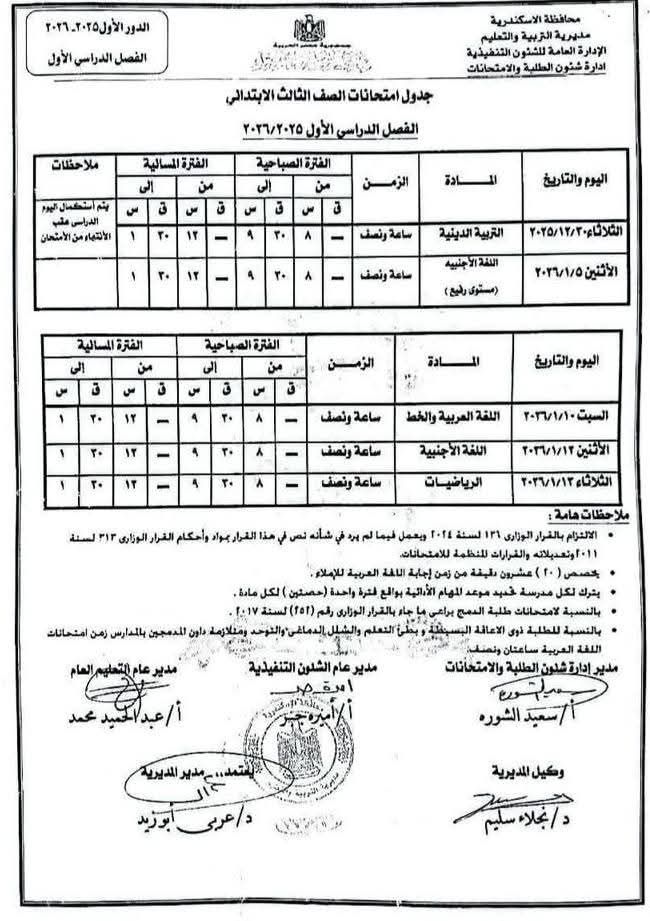 محافظة الاسكندرية
مديرية التربية والتعليم
الإدارة العامة للشئون التنفيذية
ادارة شئون الطلبة والامتحانات
جمهورية مصر العربية
الدور الأول ٢٠٢٥-٢٠٢٦
الفصل الدراسي الأول
جدول امتحانات الصف الثالث الابتدائي
الفصل الدراسي الأول ٢٠٢٦/٢٠٢٥
اليوم والتاريخ المــادة الزمـن الفترة الصباحية الفترة المسائية ملاحظات
من إلى من إلى
ق س ق س ق س ق س
الثلاثاء ٢٠٢٥/١٢/٣٠ التربية الدينية ساعة ونصف — ٨ ٣٠ ٩ — ١٢ ٣٠ ١
يتم أستكمال اليوم
الدراسى عقب
الأنتهاء من الأمتحان
الأثنين ٢٠٢٦/١/٥ اللغة الأجنبيه
(مستوى رفيع) ساعة ونصف — ٨ ٣٠ ٩ — ١٢ ٣٠ ١
اليوم والتاريخ المــادة الزمـن الفترة الصباحية الفترة المسائية
من إلى من إلى
ق س ق س ق س ق س
السبت ٢٠٢٦/١/١٠ اللغة العربية والخط ساعة ونصف — ٨ ٣٠ ٩ — ١٢ ٣٠ ١
الأثنين ٢٠٢٦/١/١٢ اللغة الأجنبية ساعة ونصف — ٨ ٣٠ ٩ — ١٢ ٣٠ ١
الثلاثاء ٢٠٢٦/١/١٣ الرياضيات ساعة ونصف — ٨ ٣٠ ٩ — ١٢ ٣٠ ١
ملاحظات هامة :
• الالتزام بالقرار الوزارى ١٣٦ لسنة ٢٠٢٤ ويعمل فيما لم يرد في شأنه نص في هذا القرار بمواد وأحكام القرار الوزارى ٣١٣ لسنة
٢٠١١ وتعديلاته والقرارات المنظمة للامتحانات.
• يخصص ( ٢٠ ) عشرون دقيقة من زمن إجابة اللغة العربية للإملاء .
• يترك لكل مدرسة تحديد موعد المهام الأدائية بواقع فترة واحدة (حصتين ) لكل مادة .
• بالنسبة لامتحانات طلبة الدمج يراعى ما جاء بالقرار الوزارى رقم (٢٥٢) لسنة ٢٠١٧ .
• بالنسبة للطلبة ذوى الاعاقة البسيطة و بطئ التعلم والشلل الدماغى والتوحد ومتلازمة داون المدمجين بالمدارس زمن امتحانات
اللغة العربية ساعتان ونصف.
مدير إدارة شئون الطلبة والامتحانات مدير عام الشئون التنفيذية مدير عام التعليم العام
أ/سعيد الشوره أ/أميره جبر أ/عبدالحميد محمد
وكيل المديرية يعتمد،،، مدير المديرية
د/نجلاء سليم د/عربى أبوزيد